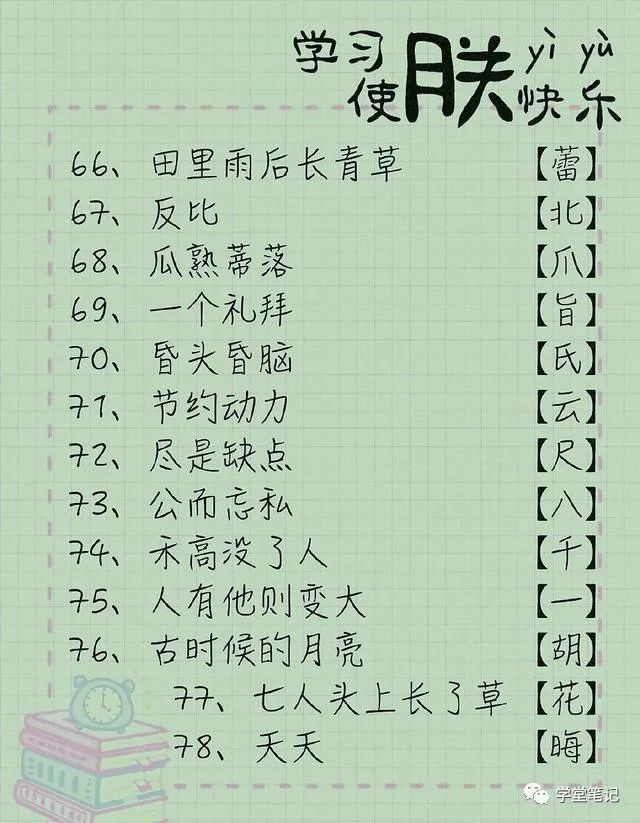 学习
使朕快乐
yì yù
66、田里雨后长青草【蕾】
67、反比【北】
68、瓜熟蒂落【爪】
69、一个礼拜【旨】
70、昏头昏脑【氏】
71、节约动力【云】
72、尽是缺点【尺】
73、公而忘私【八】
74、禾高没了人【千】
75、人有他则变大【一】
76、古时候的月亮【胡】
77、七人头上长了草【花】
78、天天【晦】
学堂笔记